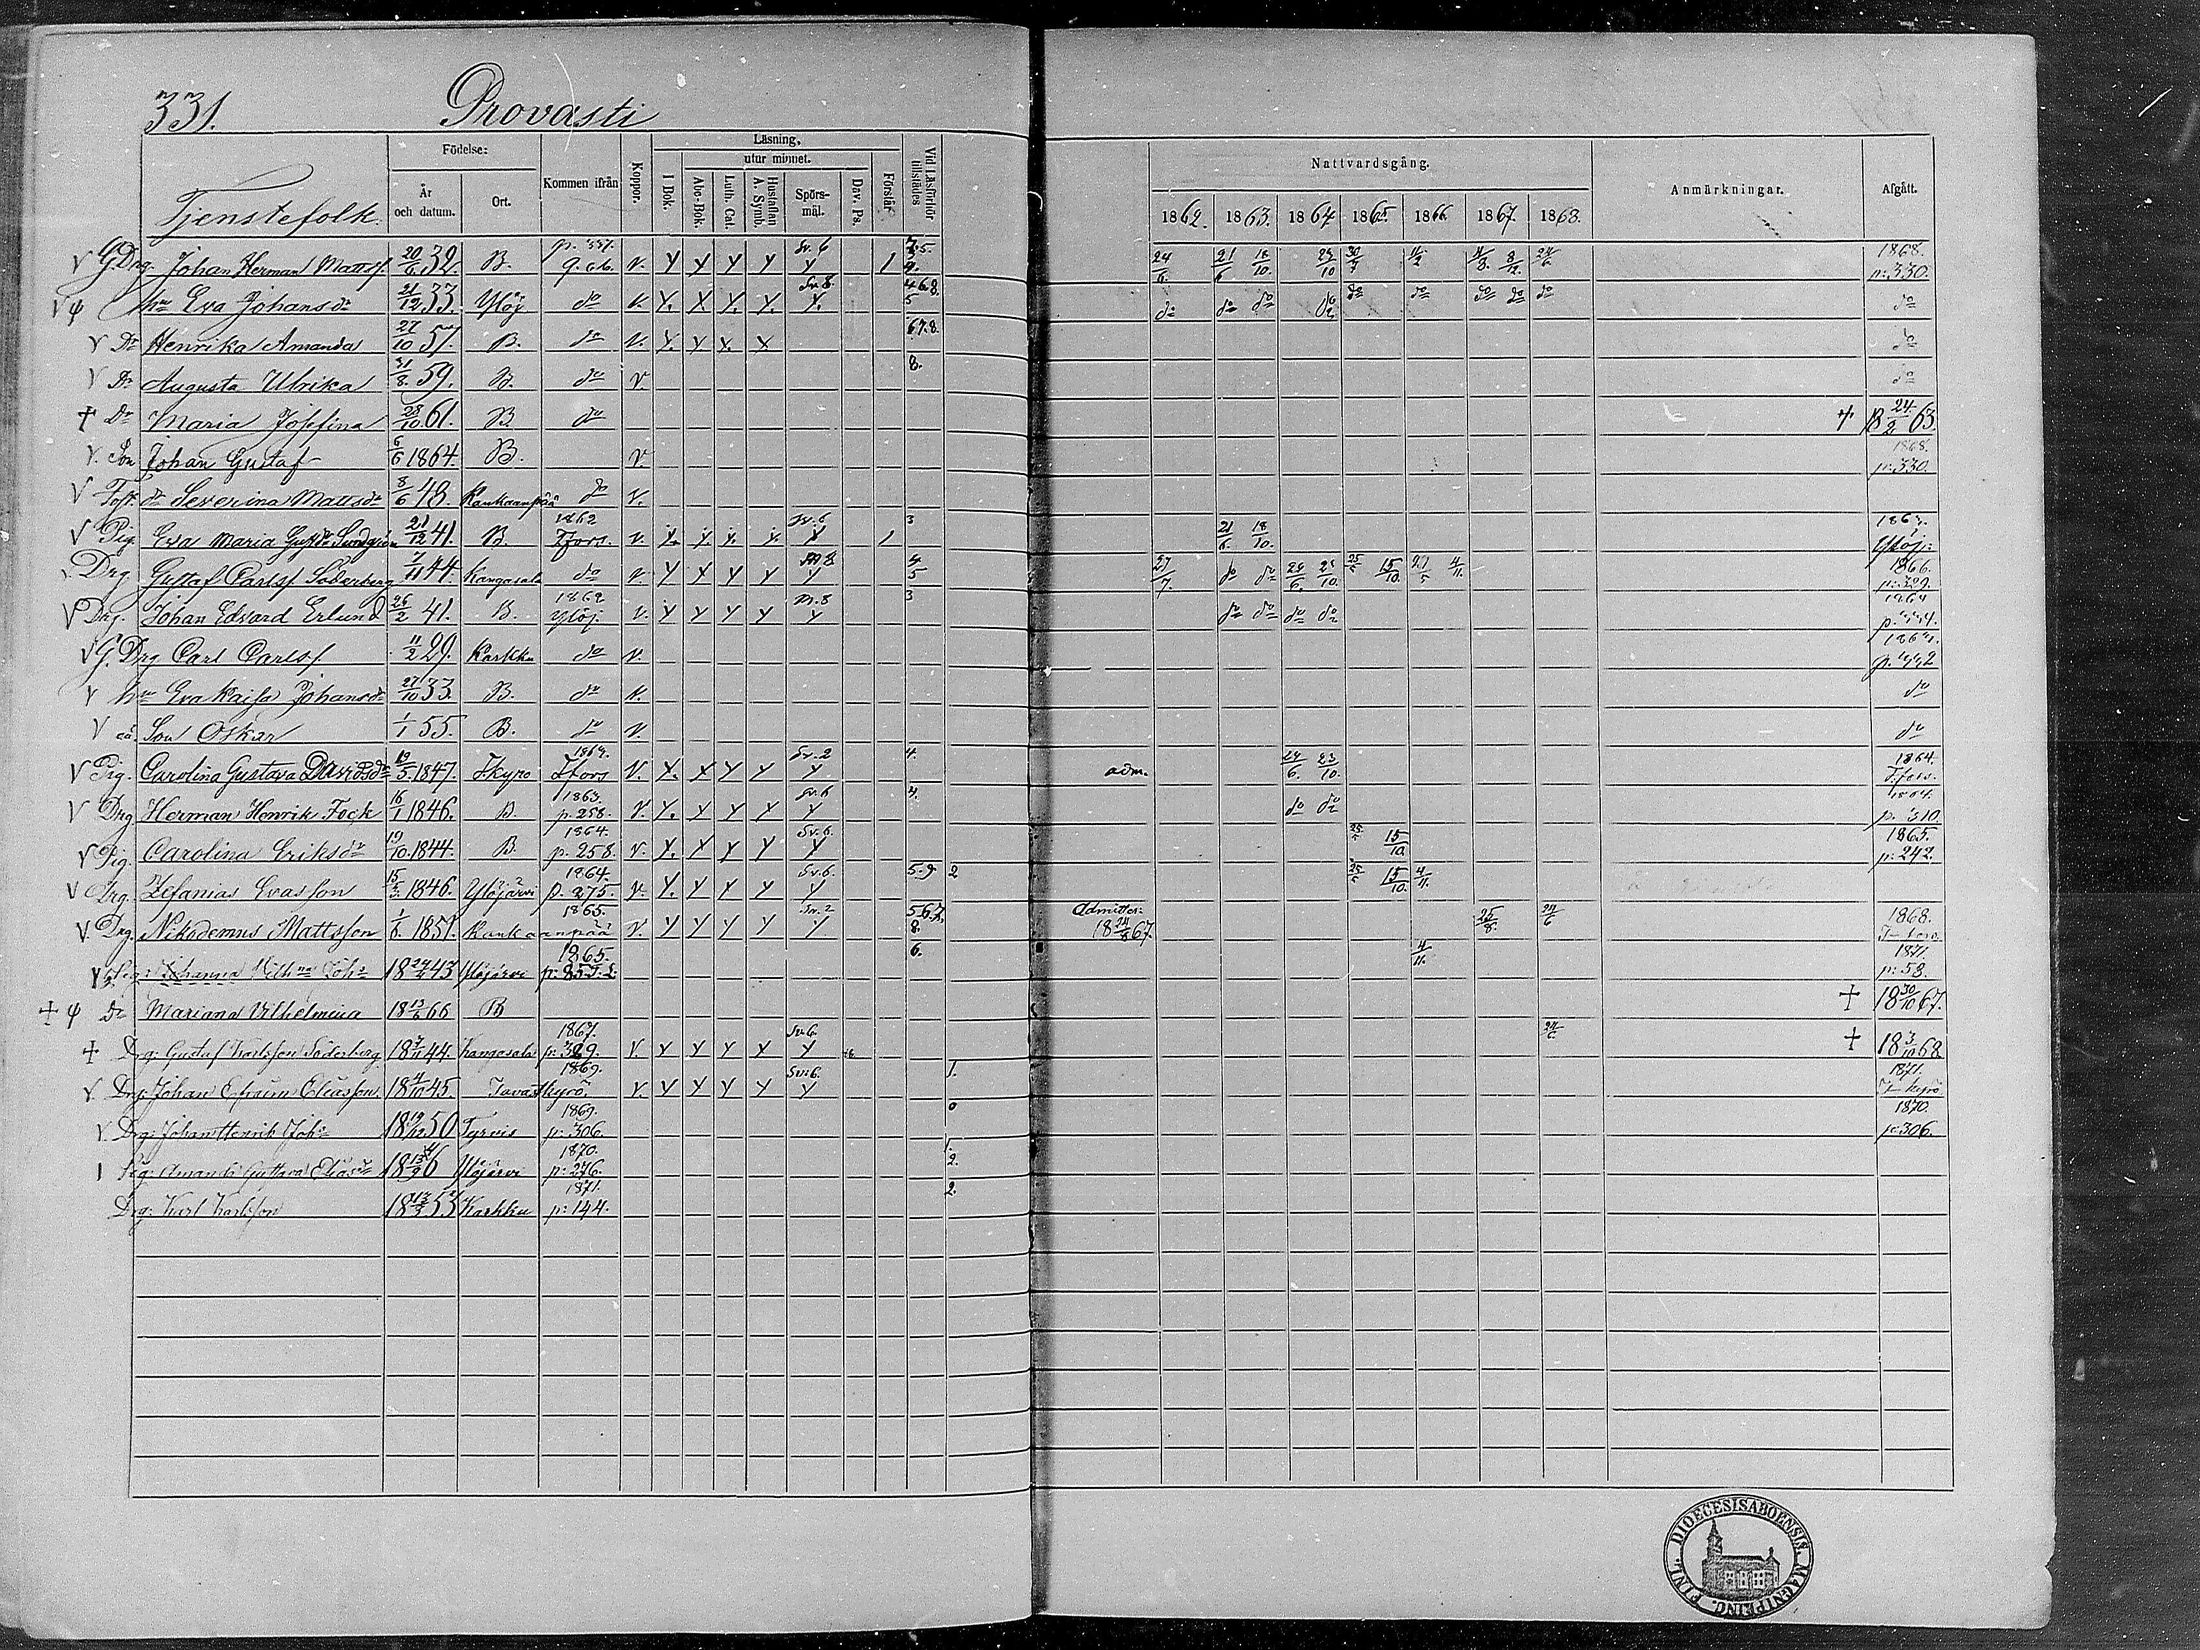 331. Provasti
Födelse: Läsning, utur minnet. Nattvardsgång. Anmärkningar. Afgått.
Tjenstefolk. År och datum. Ort. Kommen ifrån Koppor. I Bok. Abc-Bok. Luth. Cat. Hustaflan A. Symb. Spörsmål. Dav. Ps. Förstår Vid Läsförhör tillstädes 1862. 1863. 1864 1865. 1866. 1867. 1868.
V G Drg. Johan Herman Mattss. 20/6 32. B. p. 337. V. Y Y Y Y Sv. 6 Y 1 24/6. 21/6 18/10. 23/10 1868. p: 330.
hu Eva Johansdr 21/12 33. Ylöj do V. Y. Y. Y. Y. Sv. 8. Y. 4 6 8. 5 do do do do do do do do do do
V Dr Henrika Amanda 27/10 57. B. do V. Y. Y Y. Y 6 7. 8. do
V Dr Augusta Ulrika 31/8. 59. B. do V. 8. do
† Dr Maria Josefina 28/10. 61. B. do † 18 24/2 63.
V. Son Johan Gustaf 6/6 1864. B. V. 1868. p: 330.
V Fost. dr Severina Mattsdr 8/6 48. Kankaanpää do V.
V Pig. Eva Maria 21/12 41. B 1862 Tfors. V. Y. Y. Y. Y. Sv. 6 Y 1 3 21/6. 18/10. Ylöj:
Drg Gustaf Carlss Söderberg 7/11 44. Kangasala do V Y Y Y Y Y 4/5 27/7. do do 25/5 15/10. 4/11. 1866. p: 329.
V Drg. Johan Edvard Erlund 26/2 41. B. 1862 Ylöj. V. Y Y Y Y Y 3 do do do do
V G. Drg Carl Carlss. 11/2 29. Karkku do V.
V hu Eva Kaisa Johansdr 27/10 33. B. do V. do
V Son Oskar 1/1 55. B. do V. do
V Pig. Carolina Gustava Davidsdr 19/5. 1847. T.kyro Tfors V. Y. Y Y Y Sv. 2 Y 4. adm. 24/6. 23/10. 1864. T.fors.
V Drg. Herman Henrik Fock 16/1 1846. B 1863. p. 258. V. Y. Y Y Y Sv. 6 Y 4. do do p. 310.
V Pig. Carolina Eriksdr 19/10. 1844. B 1864. p. 258. V. Y. Y Y Y Sv. 6. Y 25/5 15/10. 1865. p: 242.
V Drg. Zefanias Evasson 15/3. 1846. Ylöjärvi 1864. p. 275. V. Y. Y Y Y Sv. 6. Y 5-9 2 25/5 15/10. 4/11.
V. Drg. Nikodemus Mattsson 1/6. 1851. Kankaanpää 1865. V. Y Y Y Y Sv. 2 Y 5.6.7. 8. Admitter: 18 24/8 67. 25/8. 24/6 1868.
Johanna 43 Ylöjärvi 1865. 6. 4/11. 1871. p: 58.
† dr Mariana Vilhelmina 18 13/6 66 B † 18 30/10 67.
† Drg: Gustaf Karlsson Söderberg. 18 7/11 44. Kangasala 1867. p: 329. V. Y Y Y Y Sv. 6. Y 24/6. † 18 3/10 68.
V. Drg: Johan Efraim Eliasson. 18 4/10 45. Tavastkyrö. 1869. V. Y Y Y Y Sv: 6. Y 1. 1871. T-kyrö
V. Drg: Johan Henrik Johs 18 19/12 50 Tyrvis 1869. p: 306. 0 1870. p: 306.
Pig: Amanda Gustava Eliasdr Ylöjärvi 1870. p: 276. 1. 2.
Drg: Karl Karlsson 53 Karkku 1871. p: 144. 2.
FINL. DIOECESIS ABOENSIS. MAGNI PRINC.